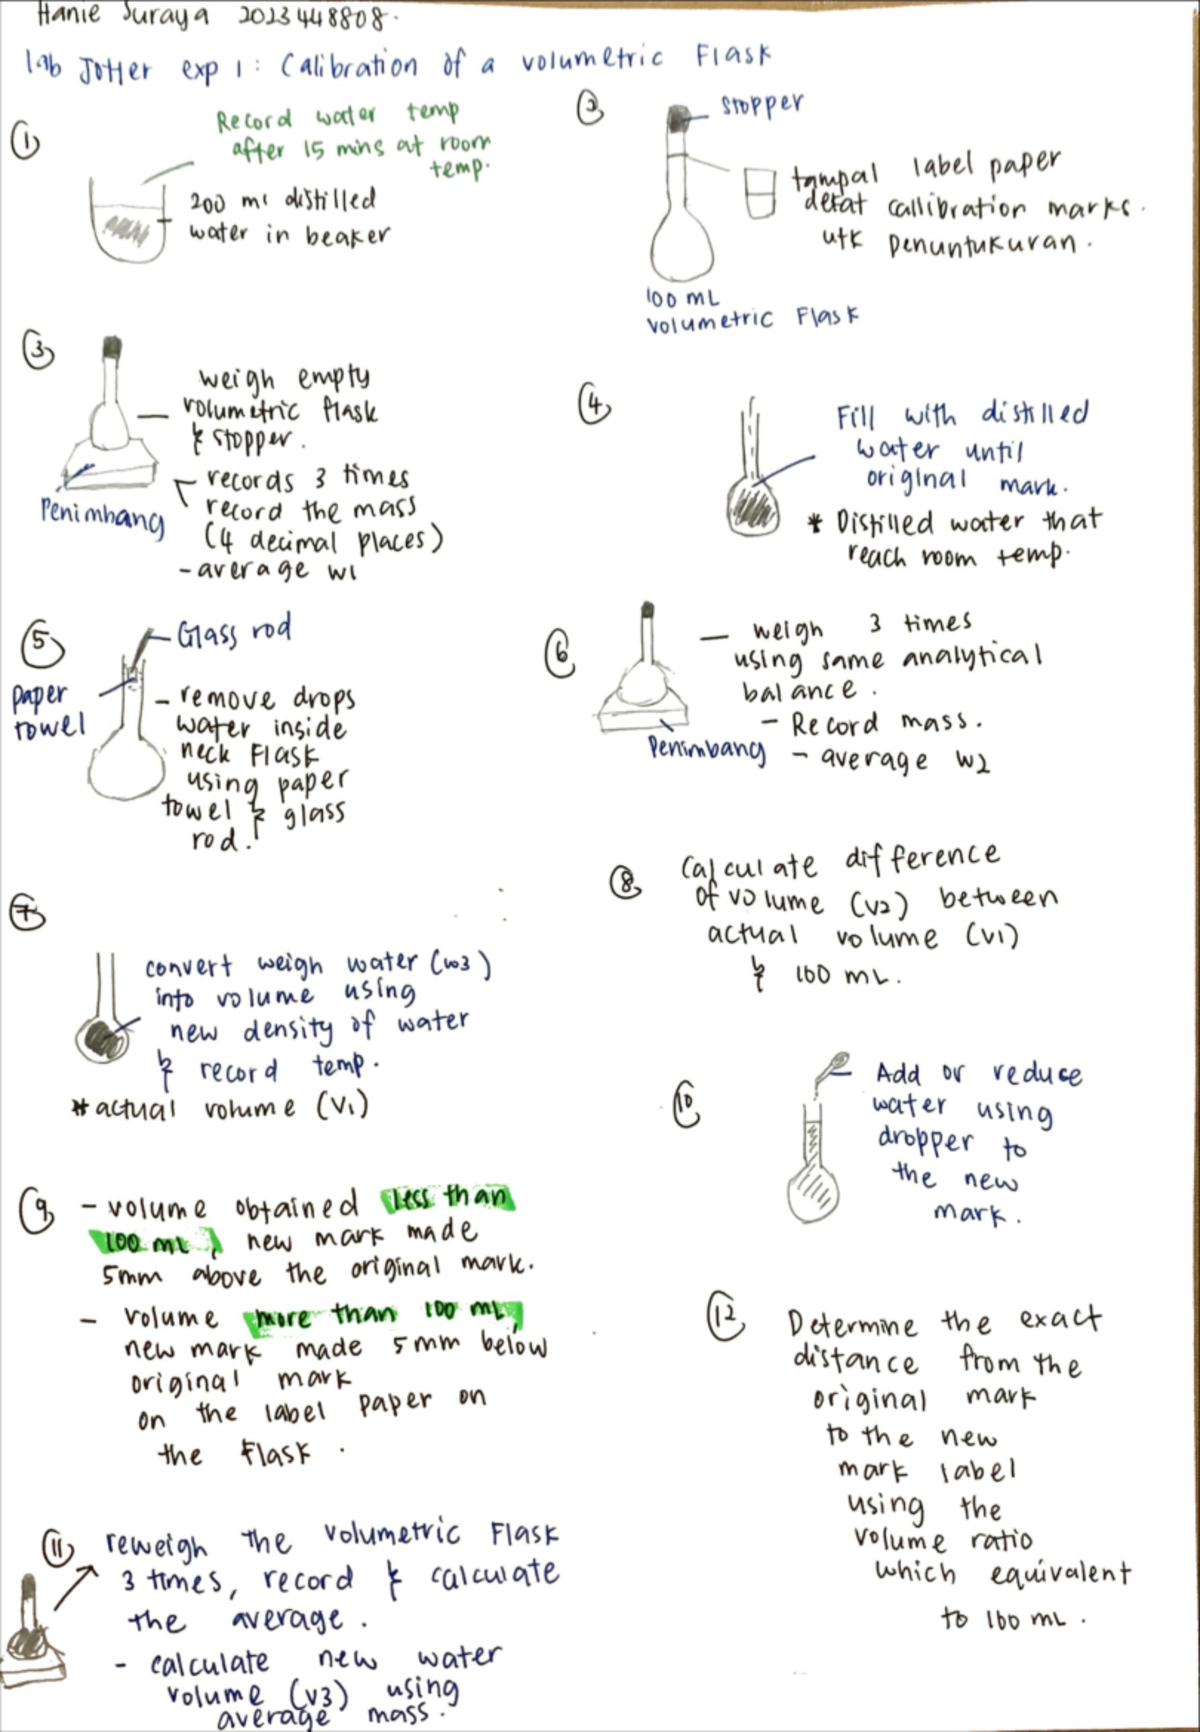 Hanie Suraya 2023448808.
lab Jotter exp 1: Calibration of a volumetric Flask
①
Record water temp
after 15 mins at room
temp.
200 ml distilled
water in beaker
②
stopper
tampal label paper
dekat callibration marks.
utk penuntukuran.
100 mL
volumetric Flask
③
weigh empty
volumetric flask
& stopper.
records 3 times
record the mass
(4 decimal places)
- average w1
Penimbang
④
Fill with distilled
water until
original mark.
* Distilled water that
reach room temp.
⑤
Glass rod
paper
towel
- remove drops
water inside
neck Flask
using paper
towel & glass
rod.
⑥
- weigh 3 times
using same analytical
balance.
- Record mass.
- average w2
Penimbang
⑦
convert weigh water (w3)
into volume using
new density of water
& record temp.
* actual volume (V1)
⑧
Calculate difference
of volume (v2) between
actual volume (v1)
& 100 mL.
⑨
- volume obtained less than
100 mL, new mark made
5mm above the original mark.
- volume more than 100 mL,
new mark made 5mm below
original mark
on the label paper on
the flask.
⑩
Add or reduce
water using
dropper to
the new
mark.
⑪
reweigh the volumetric Flask
3 times, record & calculate
the average.
- calculate new water
volume (v3) using
average mass.
⑫
Determine the exact
distance from the
original mark
to the new
mark label
using the
volume ratio
which equivalent
to 100 mL.